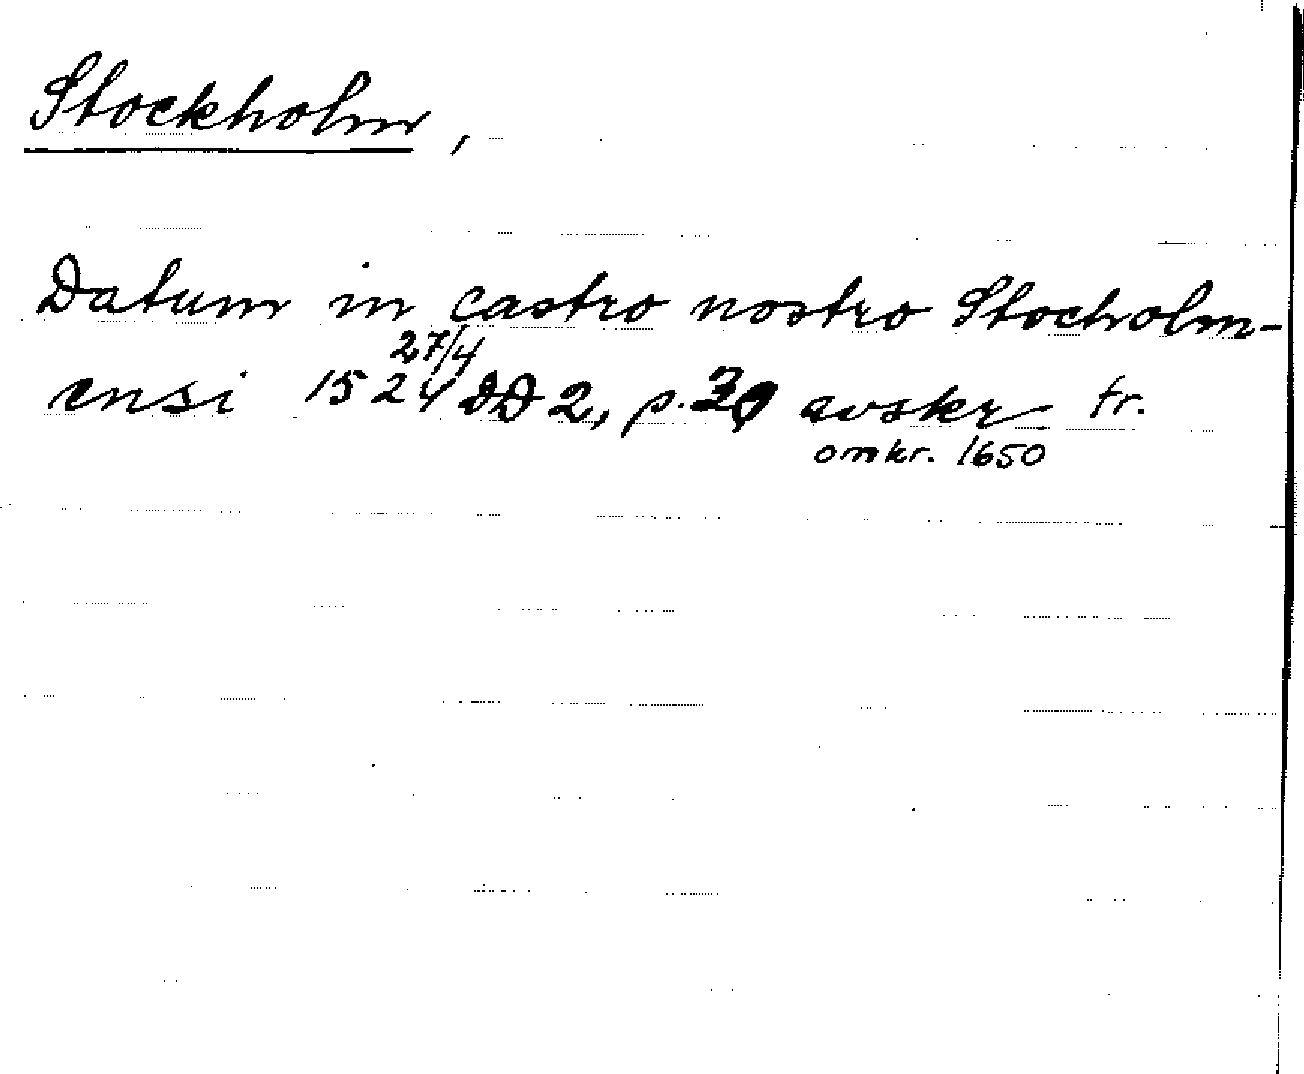 Stockholm,
Datum in castro nostro Stocholm-
ensi 1524 27/4 DD 2, p. avskr tr.
omkr. 1650